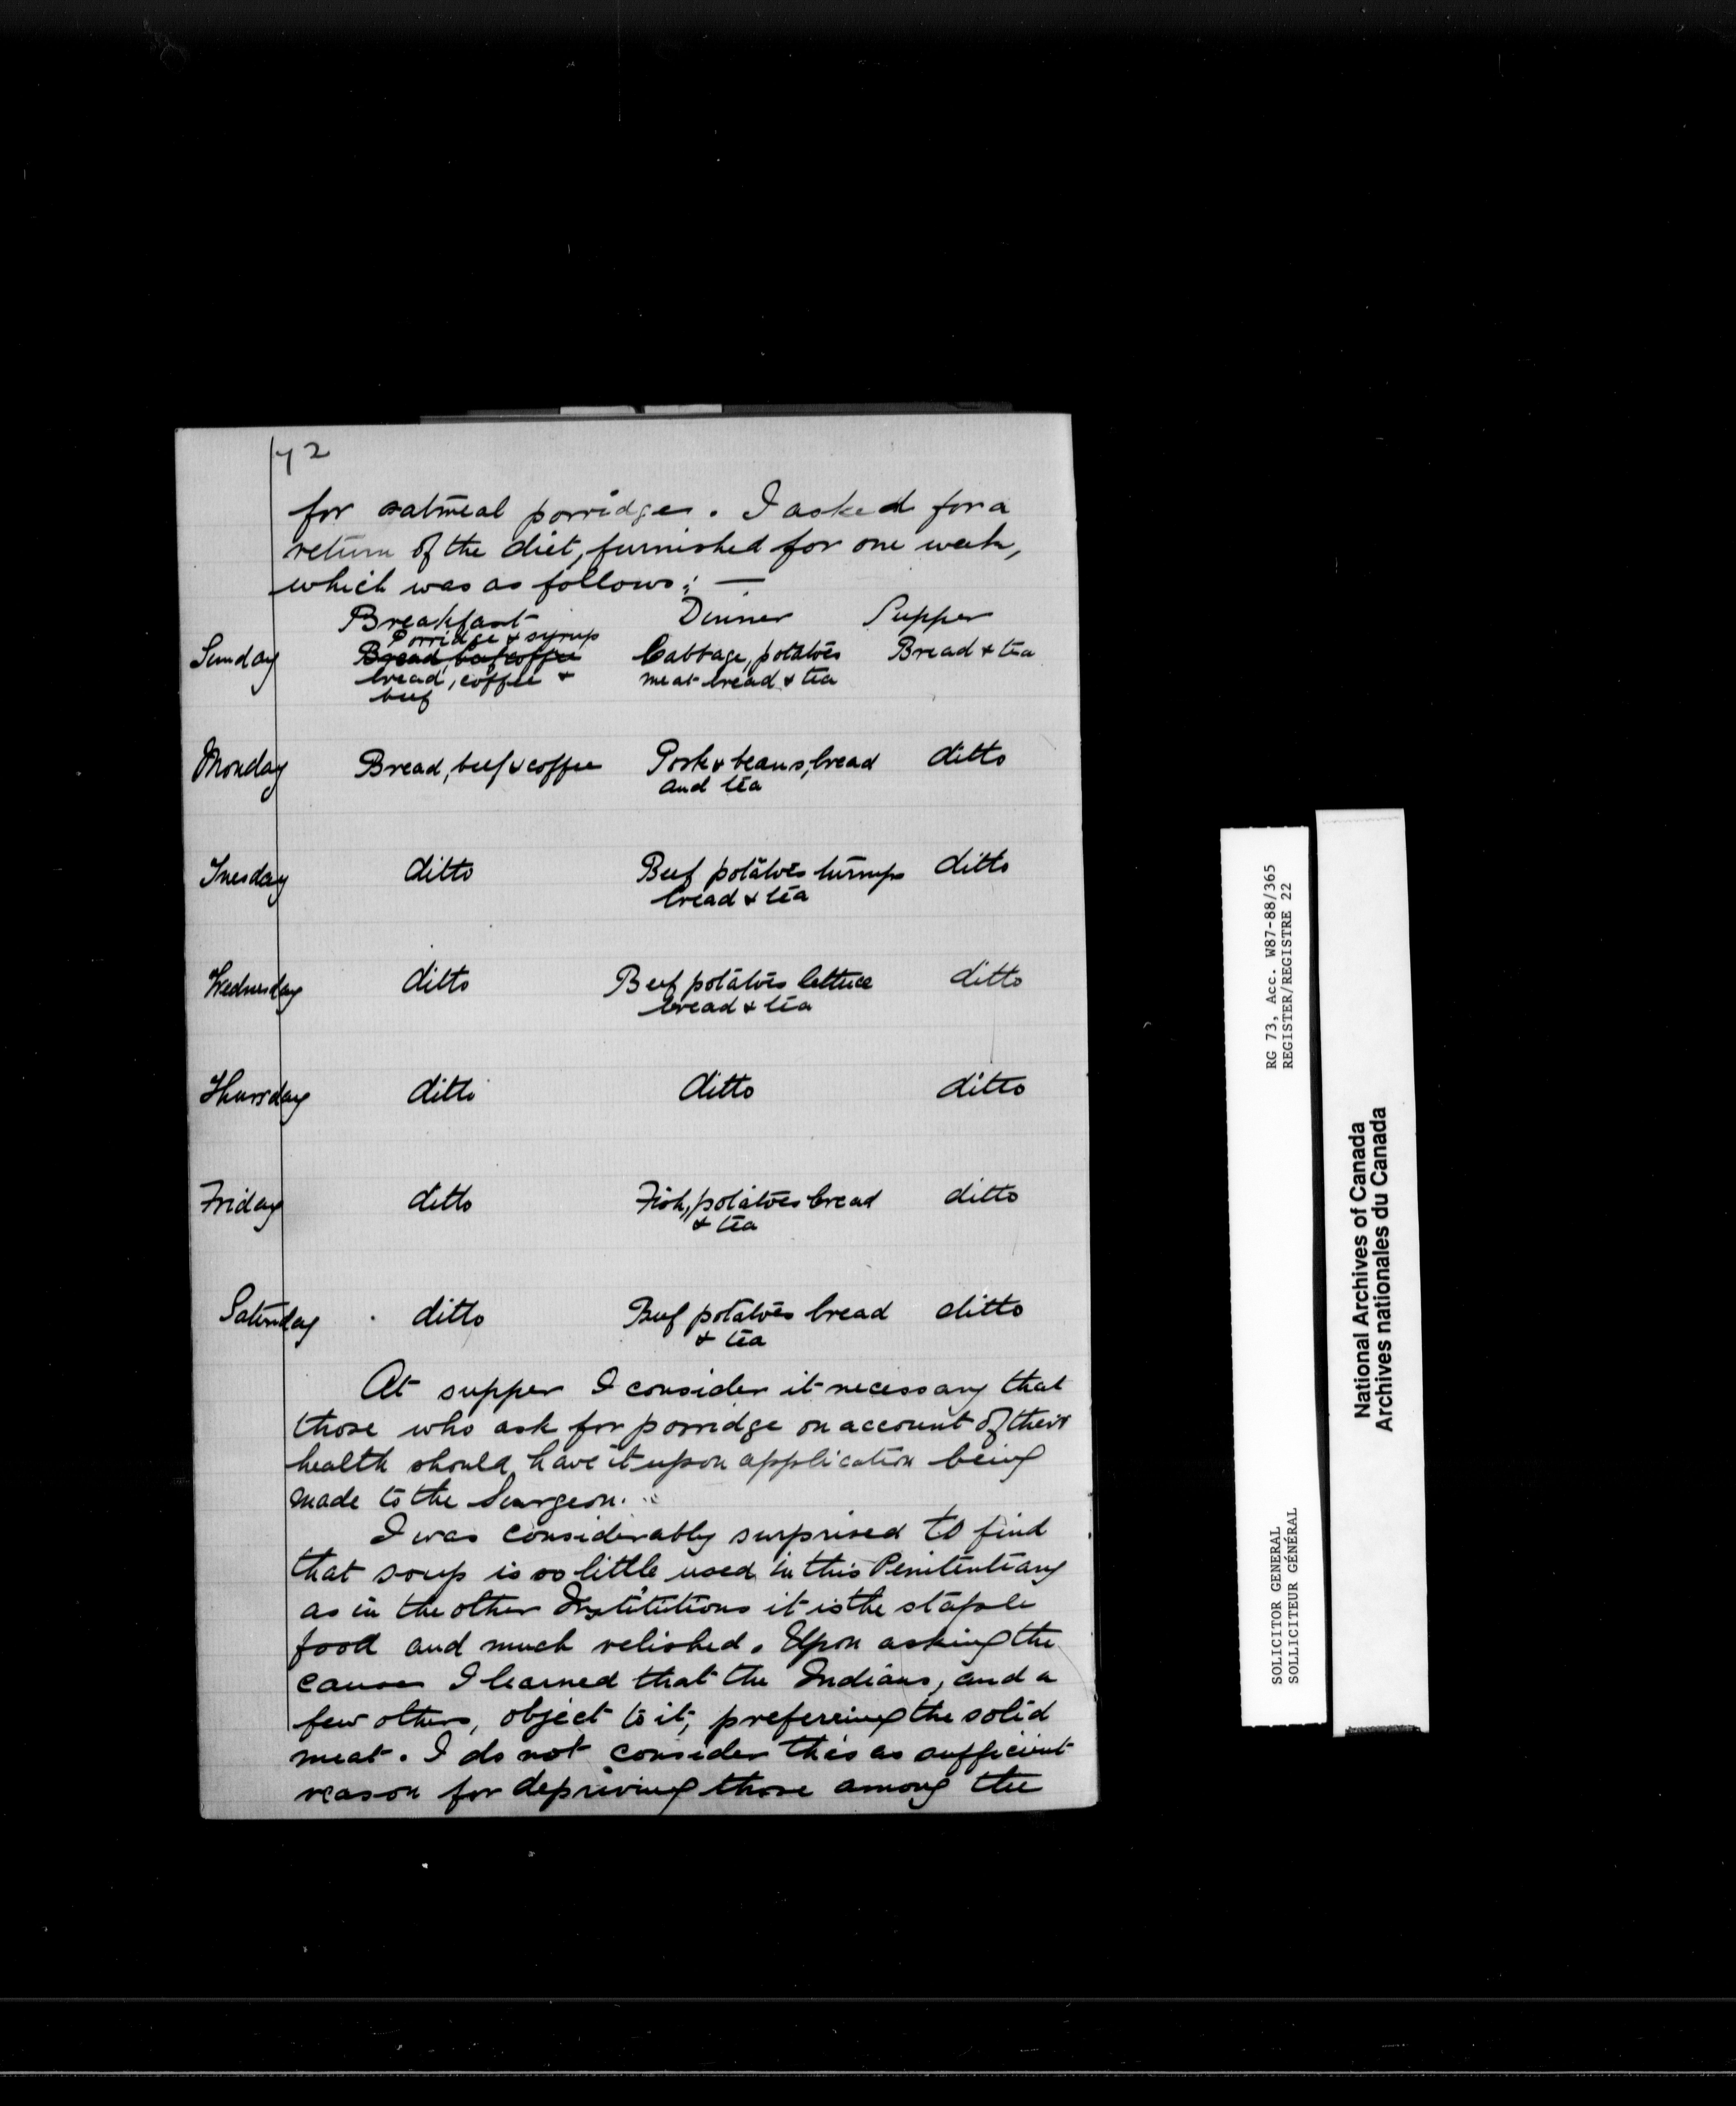 72
for oatmeal porridge. I asked for a
return of the diet, furnished for one week,
which was as follows: —
Breakfast Dinner Supper
Porridge & syrup
Sunday Bread, beef coffee Cabbage, potatoes Bread & tea
bread, coffee & meat bread & tea
beef
Monday Bread, beef & coffee Pork & beans, bread ditto
and tea
Tuesday ditto Beef potatoes turnips ditto
bread & tea
Wednesday ditto Beef potatoes lettuce ditto
bread & tea
Thursday ditto ditto ditto
Friday ditto Fish, potatoes bread ditto
& tea
Saturday ditto Beef potatoes bread ditto
& tea
At supper I consider it necessary that
those who ask for porridge on account of their
health should have it upon application being
made to the Surgeon.
I was considerably surprised to find
that soup is so little used in this Penitentiary
as in the other Institutions it is the staple
food and much relished. Upon asking the
cause I learned that the Indians, and a
few others, object to it, preferring the solid
meat. I do not consider this as sufficient
reason for depriving those among the
RG 73, Acc. W87-88/365
REGISTER/REGISTRE 22
SOLICITOR GENERAL
SOLLICITEUR GÉNÉRAL
National Archives of Canada
Archives nationales du Canada